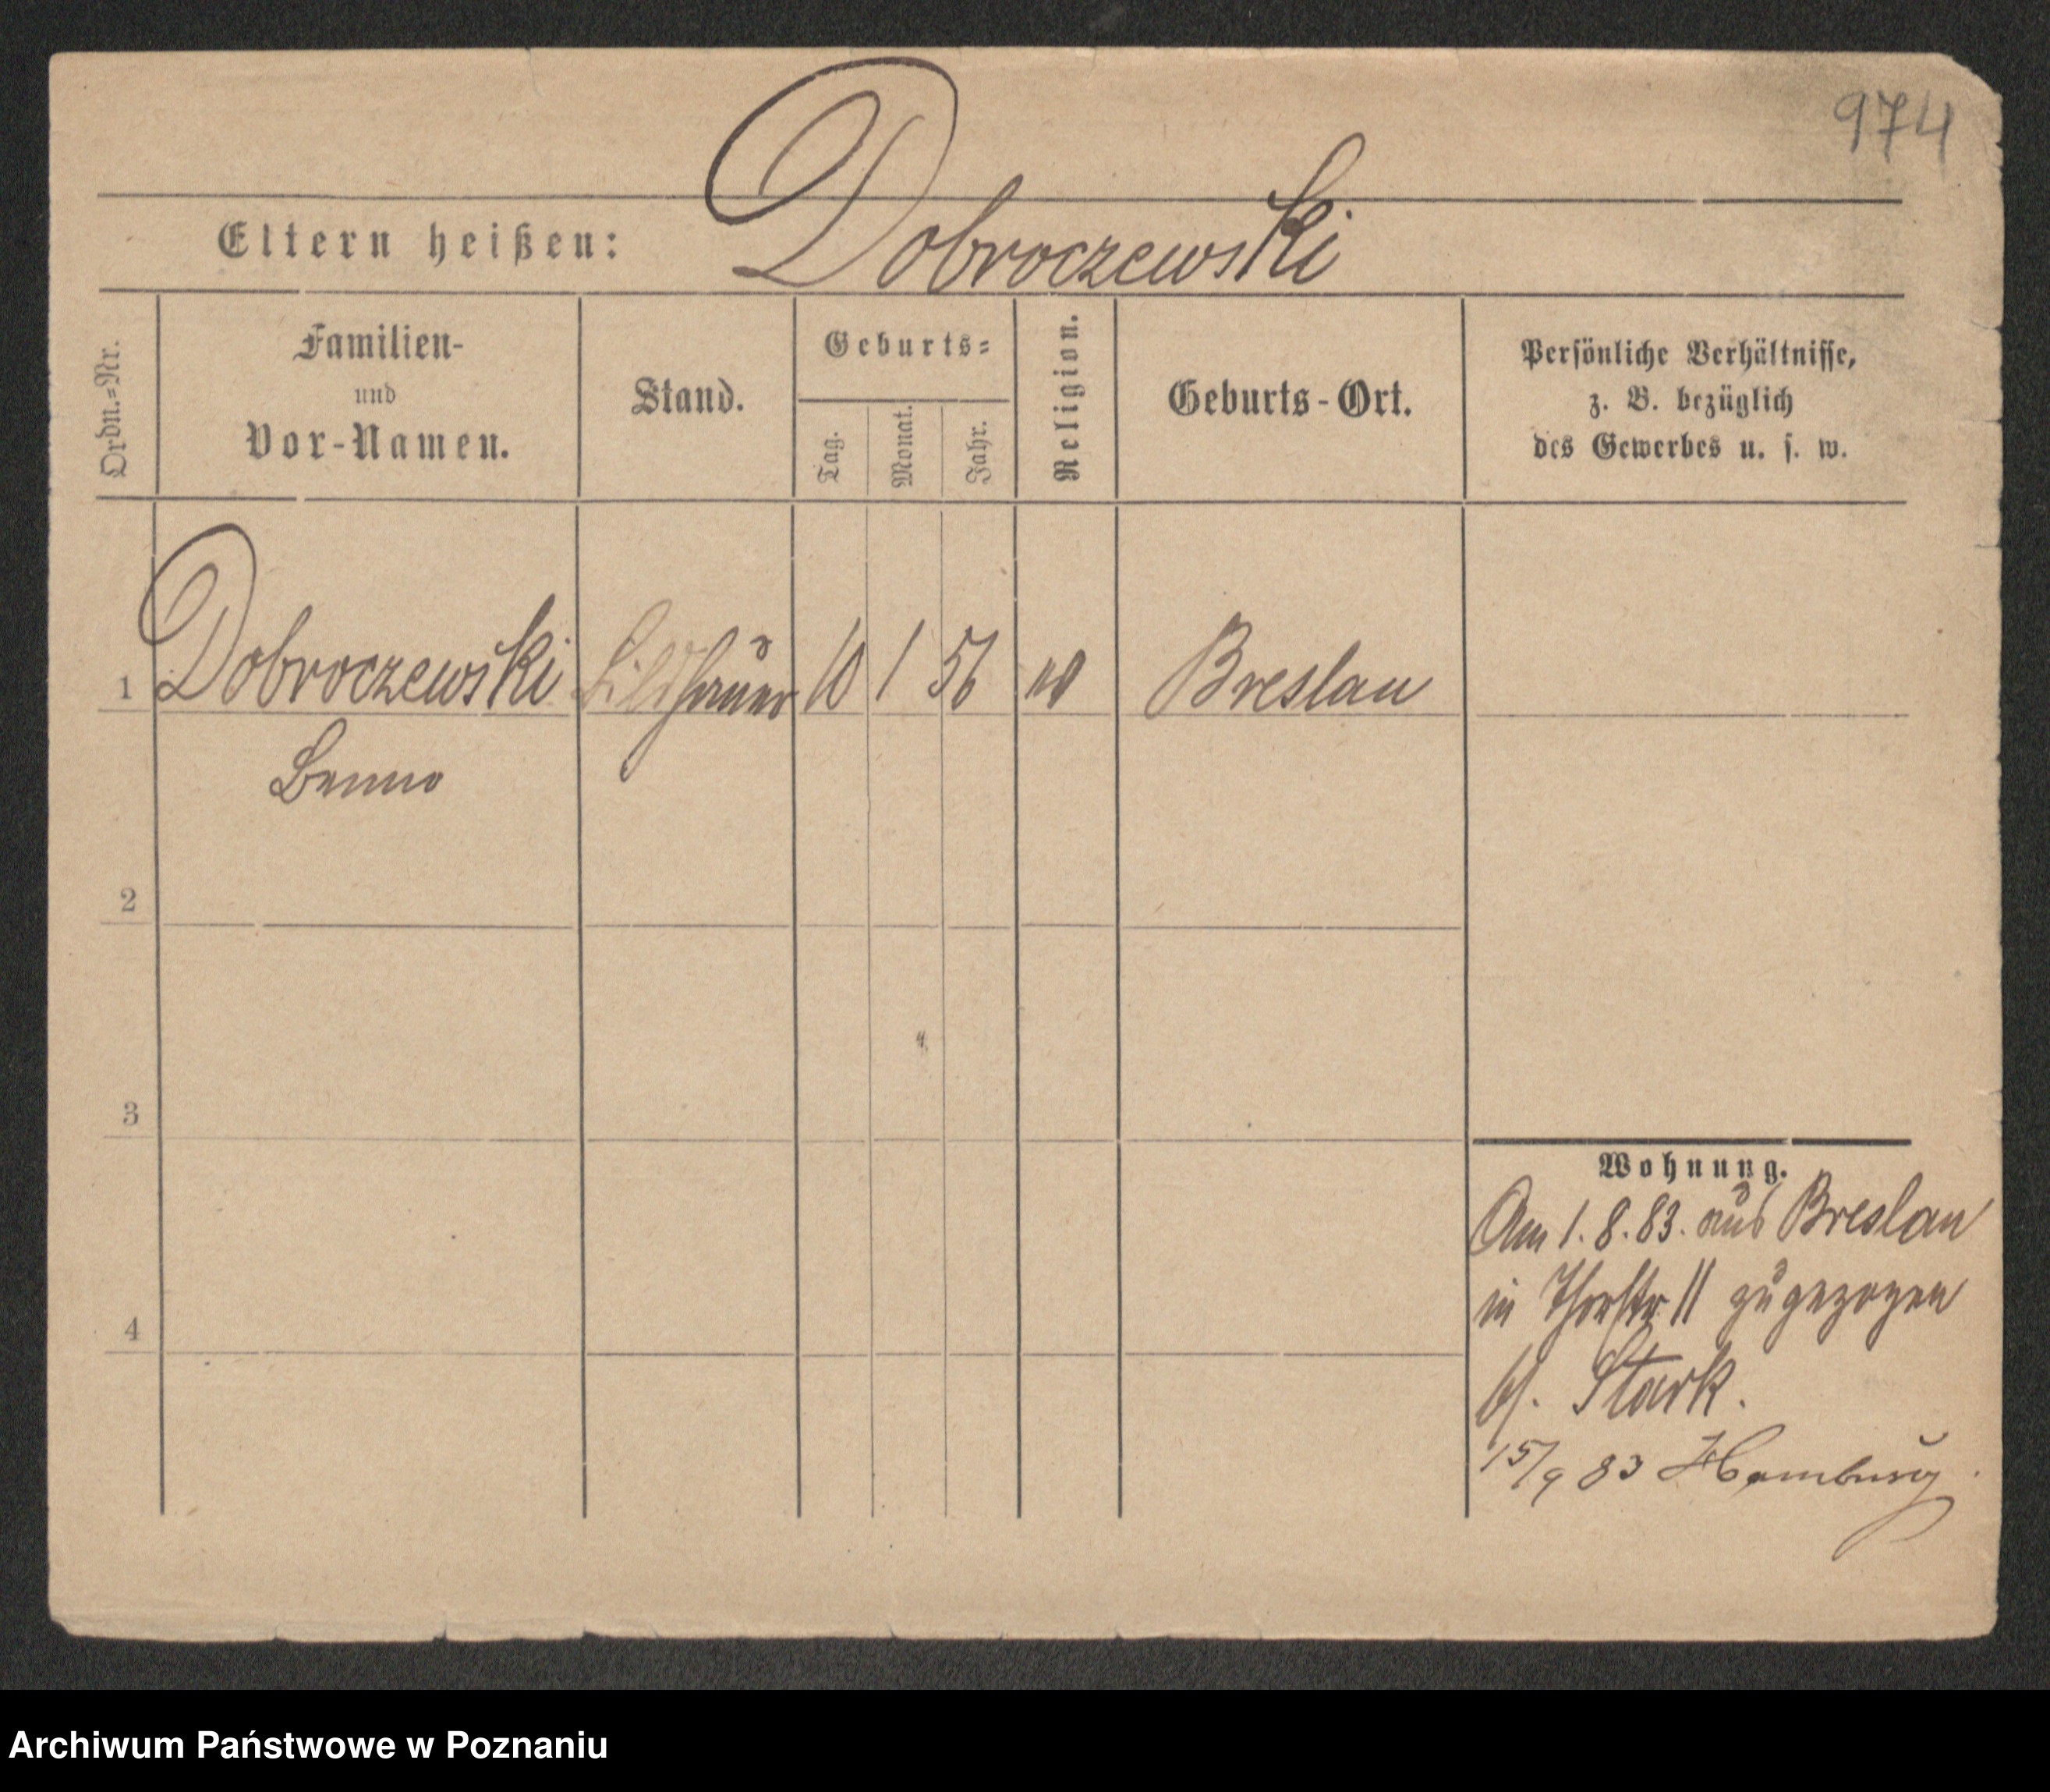 974
Dobroczewski
Eltern heißen:
Ordn.=Nr.
Familien-
und
Vor-Namen.
Stand.
Geburts=
Tag.
Monat.
Jahr.
Religion.
Geburts-Ort.
Persönliche Verhältnisse,
z. B. bezüglich
des Gewerbes u. s. w.
1 Dobroczewski Bildhauer 10 1 56 Breslau
Benno
2
3
4
Wohnung.
Am 1.8.83. aus Breslau
in Thorstr 11 zugezogen
bf. Stark.
15/9 83 Hamburg.
Archiwum Państwowe w Poznaniu